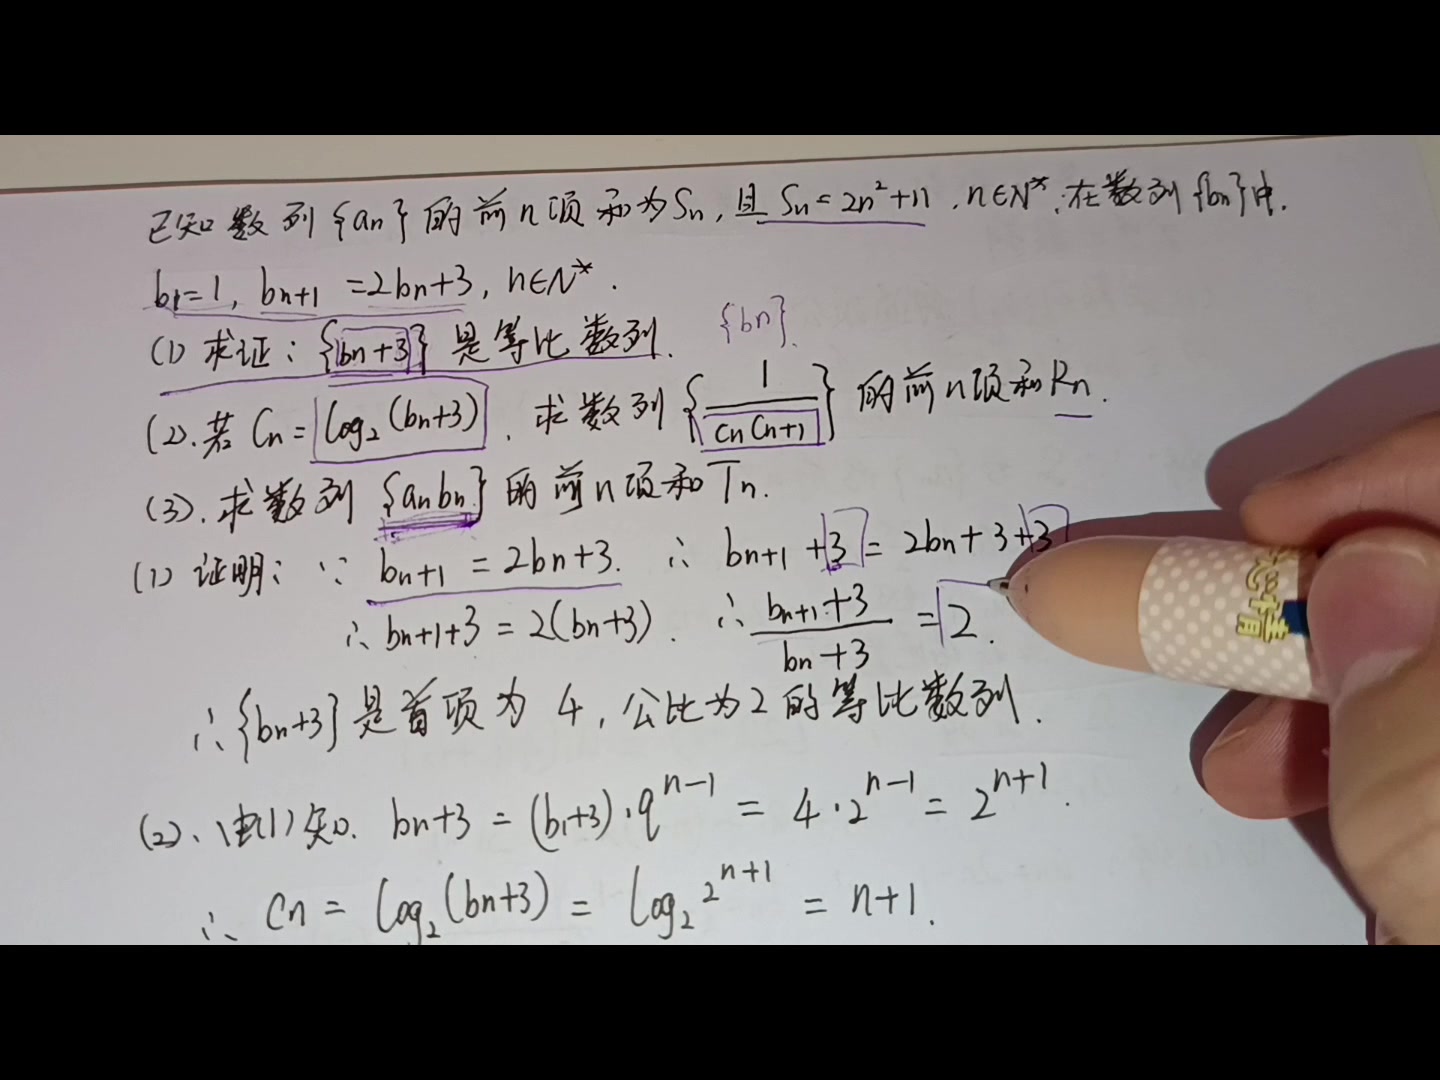 已知数列{an}的前n项和为Sn,且Sn=2n²+n,n∈N*,在数列{bn}中.
b1=1, bn+1=2bn+3, n∈N*.
(1) 求证:{bn+3}是等比数列. {bn}.
(2).若Cn=log₂(bn+3),求数列{1/(CnCn+1)}的前n项和Rn.
(3).求数列{anbn}的前n项和Tn.
(1) 证明:∵ bn+1=2bn+3. ∴ bn+1+3=2bn+3+3
∴ bn+1+3=2(bn+3). ∴ (bn+1+3)/(bn+3)=2.
∴{bn+3}是首项为4,公比为2的等比数列.
(2)、由(1)知. bn+3=(b1+3)·q^(n-1)=4·2^(n-1)=2^(n+1).
∴ Cn=log₂(bn+3)=log₂2^(n+1)=n+1.